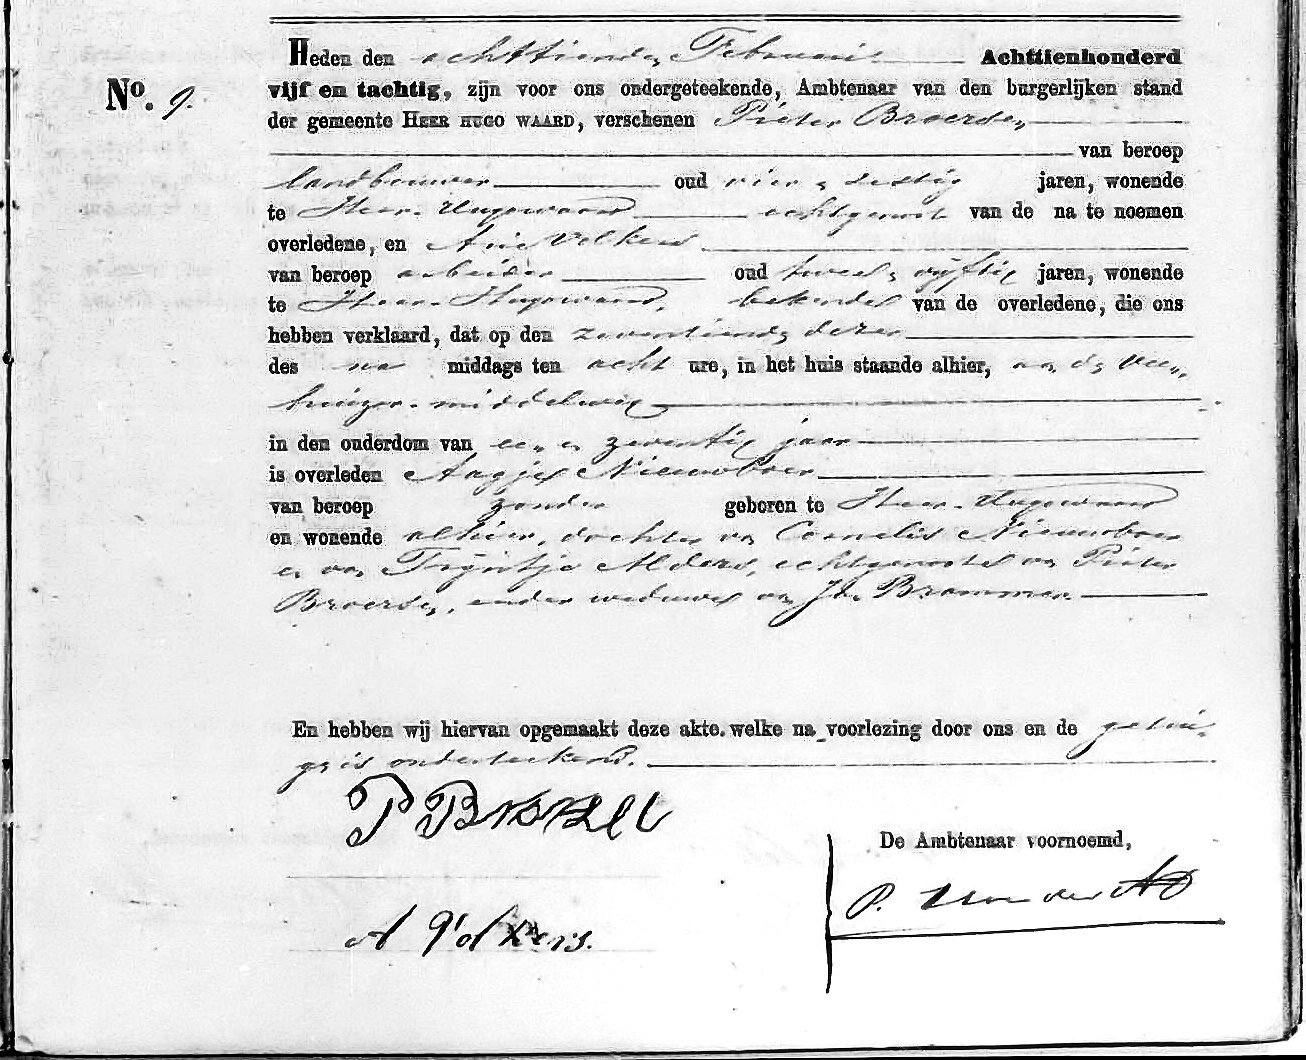 Heden den achttienden Februari Achttienhonderd
No. 9. vijf en tachtig, zijn voor ons ondergeteekende, Ambtenaar van den burgerlijken stand
der gemeente HEER HUGO WAARD, verschenen Pieter Broersen
van beroep
landbouwer oud vier en zestig jaren, wonende
te Heer-Hugowaard echtgenoot van de na te noemen
overledene, en Arie Volkers
van beroep arbeider oud twee en vijftig jaren, wonende
te Heer-Hugowaard, bekende van de overledene, die ons
hebben verklaard, dat op den zeventienden dezer
des na middags ten acht ure, in het huis staande alhier, aan de Veen-
huizer-middelweg
in den ouderdom van een en zeventig jaar
is overleden Aagje Nieuwboer
van beroep zonder geboren te Heer-Hugowaard
en wonende alhier, dochter van Cornelis Nieuwboer
en van Trijntje Alders, echtgenoote van Pieter
Broersen, eerder weduwe van Jan Brammer.
En hebben wij hiervan opgemaakt deze akte. welke na voorlezing door ons en de getui-
gen is onderteekend.
P Broersen
De Ambtenaar voornoemd,
P. van der
A Volkers.